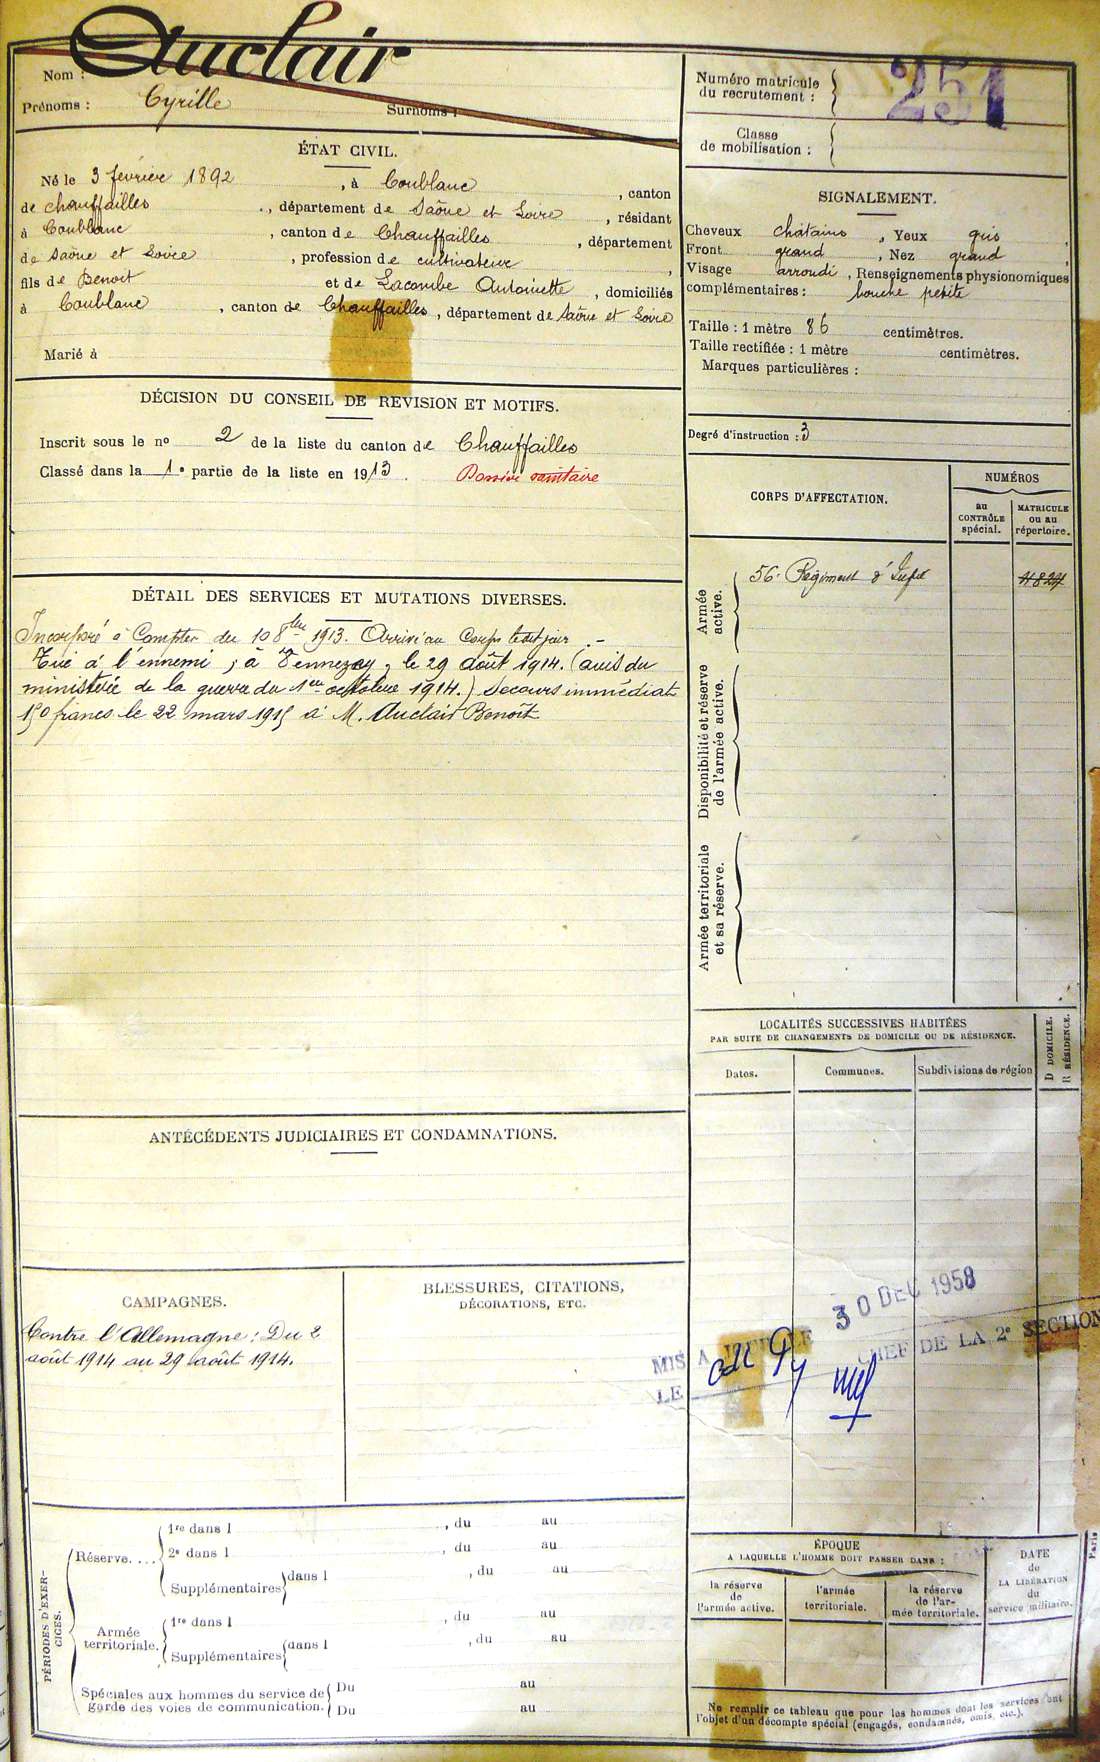 Auclair
Nom :
Prénoms : Cyrille Surnoms :
ÉTAT CIVIL.
Né le 3 février 1892, à Coublanc, canton
de chauffailles, département de Saône et Loire, résidant
à Coublanc, canton de Chauffailles, département
de Saône et Loire, profession de cultivateur,
fils de Benoit et de Lacombe Antoinette, domiciliés
à Coublanc, canton de Chauffailles, département de Saône et Loire
Marié à
DÉCISION DU CONSEIL DE REVISION ET MOTIFS.
Inscrit sous le no 2 de la liste du canton de Chauffailles
Classé dans la 1e partie de la liste en 1913. Dossier sanitaire
DÉTAIL DES SERVICES ET MUTATIONS DIVERSES.
Incorporé à Compter du 10 8bre 1913. Arrivé au Corps ledit jour. -
Tué à l'ennemi, à Vennezey, le 29 août 1914. (avis du
ministère de la guerre du 1er octobre 1914.) Secours immédiat
150 francs le 22 mars 1915 à M. Auclair Benoît
ANTÉCÉDENTS JUDICIAIRES ET CONDAMNATIONS.
CAMPAGNES.
Contre l'Allemagne : Du 2
août 1914 au 29 août 1914.
BLESSURES, CITATIONS,
DÉCORATIONS, ETC.
PÉRIODES D'EXER-
CICES.
Réserve....
1re dans l , du au
2e dans l , du au
Supplémentaires dans l , du au
Armée
territoriale.
1re dans l , du au
Supplémentaires dans l , du au
Spéciales aux hommes du service de
garde des voies de communication.
Du au
Du au
Numéro matricule
du recrutement :
251
Classe
de mobilisation :
SIGNALEMENT.
Cheveux châtains, Yeux gris,
Front grand, Nez grand,
Visage arrondi, Renseignements physionomiques
complémentaires : bouche petite
Taille : 1 mètre 86 centimètres.
Taille rectifiée : 1 mètre centimètres.
Marques particulières :
Degré d'instruction : 3
CORPS D'AFFECTATION.
NUMÉROS
au
CONTRÔLE
spécial.
MATRICULE
ou au
répertoire.
Armée
active.
56e Régiment d'Infie
Disponibilité et réserve
de l'armée active.
Armée territoriale
et sa réserve.
LOCALITÉS SUCCESSIVES HABITÉES
PAR SUITE DE CHANGEMENTS DE DOMICILE OU DE RÉSIDENCE.
Dates.
Communes.
Subdivisions de région
D DOMICILE.
R RÉSIDENCE.
30 DEC 1958
MIS A JOUR LE
CHEF DE LA 2e SECTION
LE
ÉPOQUE
A LAQUELLE L'HOMME DOIT PASSER DANS :
la réserve
de
l'armée active.
l'armée
territoriale.
la réserve
de l'ar-
mée territoriale.
DATE
de
LA LIBÉRATION
du
service militaire.
Ne remplir ce tableau que pour les hommes dont les services ont
l'objet d'un décompte spécial (engagés, condamnés, omis, etc.).
Paris